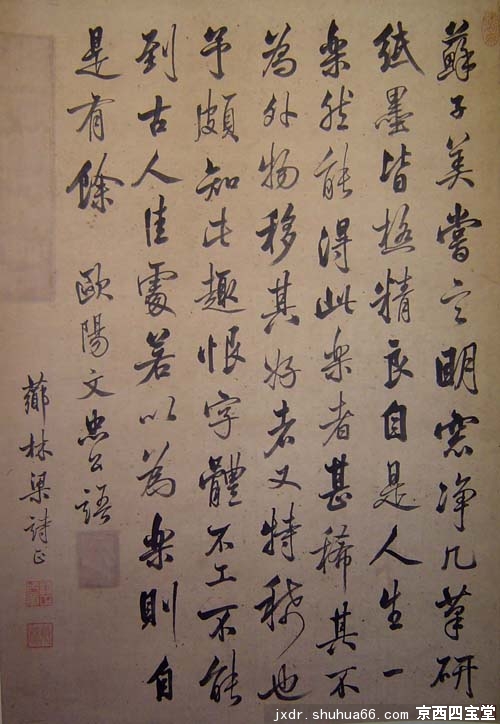 蘇子美嘗言明窓净几筆研
紙墨皆極精良自是人生一
樂然能得此樂者甚稀其不
為外物移其好者又特稀也
予頗知此趣恨字體不工不能
到古人佳處若以為樂則自
是有餘
歐陽文忠公語
薌林梁詩正
jxdr.shuhua66.com/
京西四宝堂